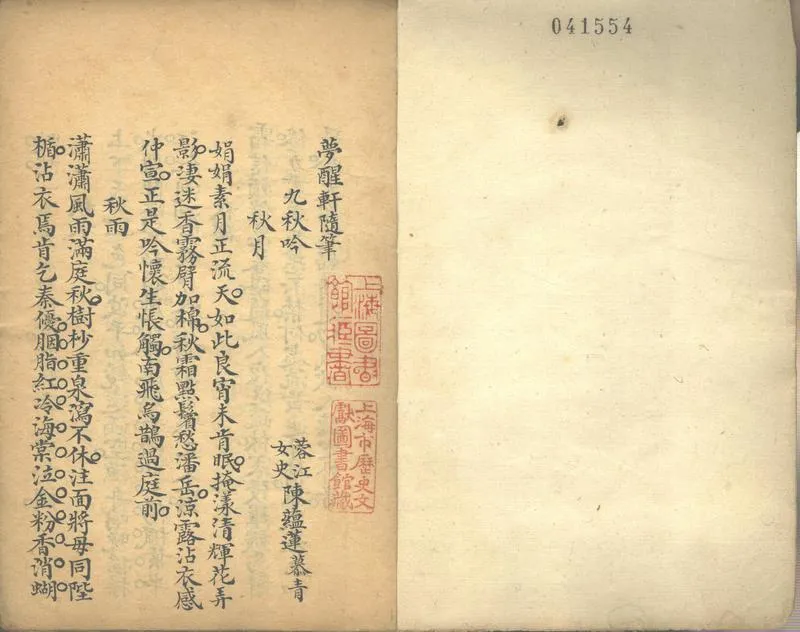 041554
夢醒軒隨筆
上海圖書
館藏書
上海市歷史文
獻圖書館藏
九秋吟
蓉江
女史
陳蘊蓮慕青
秋月
娟娟素月正流天如此良宵未肯眠掩漾清輝花弄
影淒迷香霧臂加棉秋霜點鬢愁潘岳涼露沾衣感
仲宣正是吟懷生悵觸南飛烏鵲過庭前
秋雨
瀟瀟風雨滿庭秋樹杪重泉瀉不休注面將毋同陛
楯沾衣焉肯乞秦優胭脂紅冷海棠泣金粉香消蝴